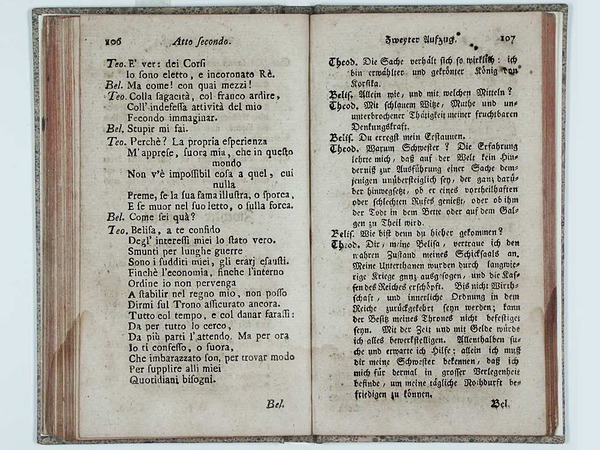 106 Atto secondo.
Teo. E' ver: dei Corsi
Io sono eletto, e incoronato Rè.
Bel. Ma come! con quai mezzi!
Teo. Colla sagacità, col franco ardire,
Coll' indefessa attività del mio
Fecondo immaginar.
Bel. Stupir mi fai.
Teo. Perchè? La propria esperienza
M'apprese, suora mia, che in questo
mondo
Non v'è impossibil cosa a quel, cui
nulla
Preme, se la sua fama illustra, o sporca,
E se muor nel suo letto, o sulla forca.
Bel. Come sei quà?
Teo. Belisa, a te confido
Degl' interessi miei lo stato vero.
Smunti per lunghe guerre
Sono i sudditi miei, gli erarj esausti.
Finchè l'economia, finche l'interno
Ordine io non pervenga
A stabilir nel regno mio, non posso
Dirmi sul Trono assicurato ancora.
Tutto col tempo, e col danar farassi:
Da per tutto lo cerco,
Da più parti l'attendo. Ma per ora
Io ti confesso, o suora,
Che imbarazzato son, per trovar modo
Per supplire alli miei
Quotidiani bisogni.
Bel.
Zweyter Aufzug. 107
Theod. Die Sache verhält sich so wirklich: ich
bin erwählter und gekrönter König von
Korsika.
Belis. Allein wie, und mit welchen Mitteln?
Theod. Mit schlauem Witze, Muthe und un-
unterbrochener Thätigkeit meiner fruchtbaren
Denkungskraft.
Belis. Du erregst mein Erstaunen.
Theod. Warum Schwester? Die Erfahrung
lehrte mich, daß auf der Welt kein Hin-
derniß zur Ausführung einer Sache dem-
jenigen unübersteiglich sey, der ganz darü-
ber hinwegsetzt, ob er eines vortheilhaften
oder schlechten Rufes genießt, oder ob ihm
der Todt in dem Bette oder auf dem Gal-
gen zu Theil wird.
Belis. Wie bist denn du hieher gekommen?
Theod. Dir, meine Belisa, vertraue ich den
wahren Zustand meines Schicksaals an.
Meine Unterthanen wurden durch langwie-
rige Kriege ganz ausgesogen, und die Kas-
sen des Reiches erschöpft. Bis nicht Wirth-
schaft, und innerliche Ordnung in dem
Reiche zurückgekehrt seyn werden; kann
der Besitz meines Thrones nicht befestiget
seyn. Mit der Zeit und mit Gelde würde
ich alles bewerkstelligen. Allenthalben su-
che und erwarte ich Hilfe; allein ich muß
dir meine Schwester bekennen, daß ich
mich für dermal in grosser Verlegenheit
befinde, um meine tägliche Nothdurft be-
friedigen zu können.
Bel.